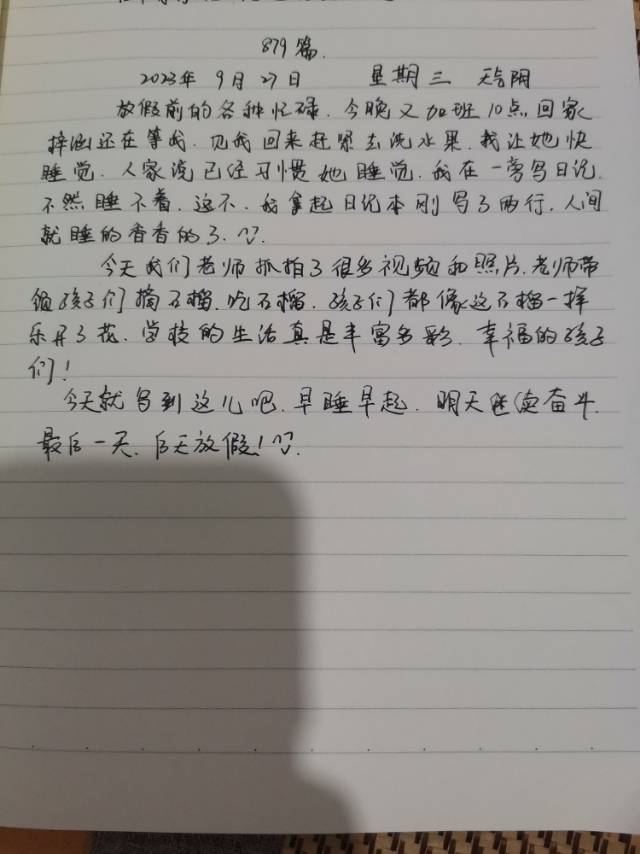 879篇.
2023年 9月27日 星期三 天气阴
放假前的各种忙碌. 今晚又加班10点回家
梓涵还在等我. 见我回来赶紧去洗水果. 我让她快
睡觉. 人家说已经习惯她睡觉. 我在一旁写日记.
不然睡不着. 这不. 我拿起日记本刚写了两行. 人间
就睡的香香的了.
今天我们老师抓拍了很多视频和照片. 老师带
领孩子们摘石榴. 吃石榴. 孩子们都像这石榴一样
乐开了花. 学校的生活真是丰富多彩. 幸福的孩子
们!
今天就写到这儿吧. 早睡早起. 明天继续奋斗.
最后一天. 后天放假!